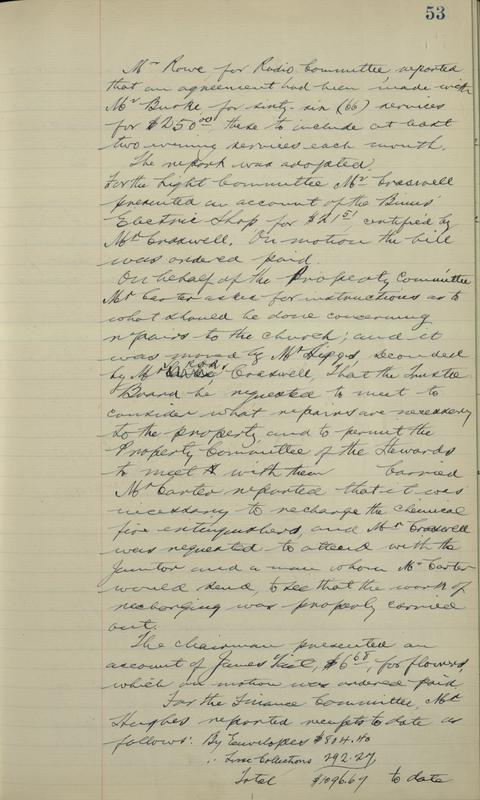 53
Mr Rowe for Radio Committee, reported
that an agreement had been made with
Mr Burke for sixty six (66) services
for $250.00 these to include at least
two evening services each month.
The report was adopted.
For the Light Committee Mr Craswell
presented an account of the
Electric Shop for $21.51 certified by
Mr Craswell. On motion the bill
was ordered paid.
On behalf of the Property Committee
Mr Carter asked for instructions as to
what should be done concerning
repairs to the church; and it
was moved by Mr Higgs, seconded
by Mr Craswell, that the Trustee
Board be requested to meet to
consider what repairs are necessary
to the property and to permit the
Property Committee of the Stewards
to meet with them Carried
Mr Carter reported that it was
necessary to recharge the chemical
fire extinguishers, and Mr Craswell
was requested to attend with the
Janitor and a man whom Mr Carter
would send, to see that the work of
recharging was properly carried
out.
The chairman presented an
account of James, $6.68, for flowers
which on motion was ordered paid.
For the Finance Committee, Mr
Hughes reported receipts to date as
follows: By Envelopes $804.40
" Loose Collections 292.27
Total $1096.67 to date